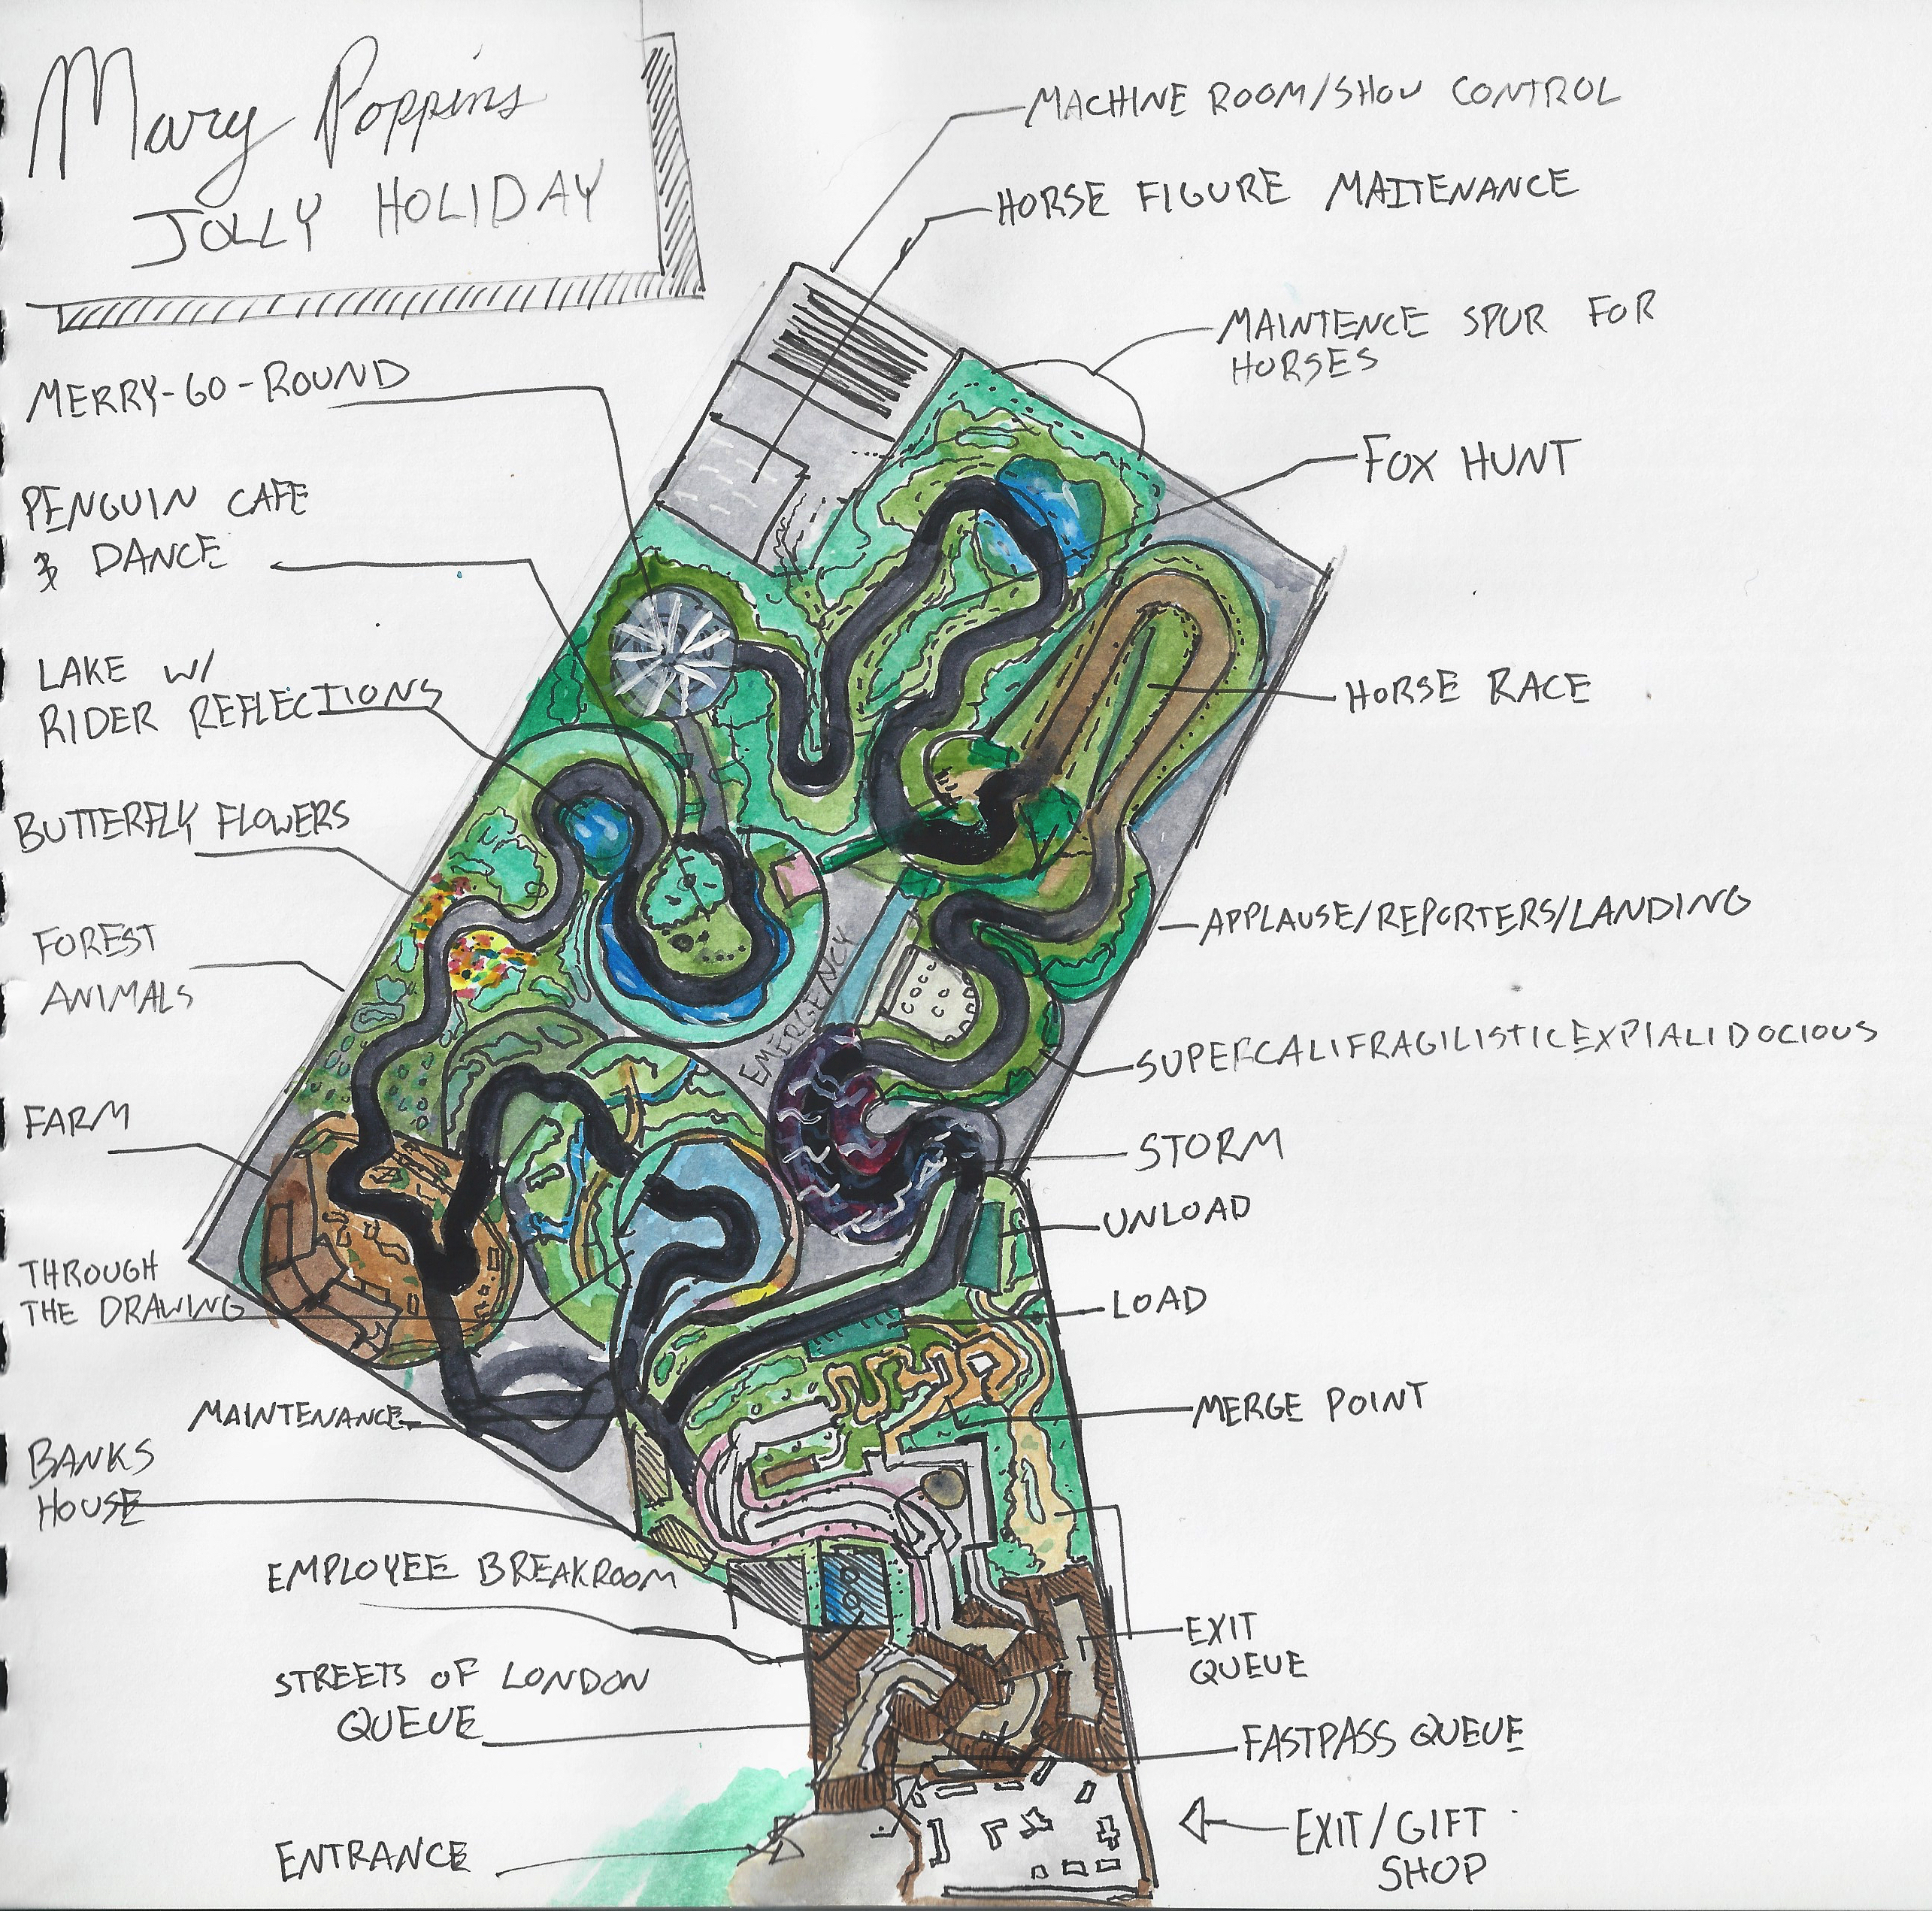 Mary Poppins
JOLLY HOLIDAY
MACHINE ROOM/SHOW CONTROL
HORSE FIGURE MAITENANCE
MAINTENCE SPUR FOR
HORSES
MERRY-GO-ROUND
FOX HUNT
PENGUIN CAFE
& DANCE
LAKE W/
RIDER REFLECTIONS
HORSE RACE
BUTTERFLY FLOWERS
APPLAUSE/REPORTERS/LANDING
FOREST
ANIMALS
EMERGENCY
SUPERCALIFRAGILISTICEXPIALIDOCIOUS
FARM
STORM
UNLOAD
THROUGH
THE DRAWING
LOAD
MAINTENANCE
MERGE POINT
BANKS
HOUSE
EMPLOYEE BREAKROOM
EXIT
QUEUE
STREETS OF LONDON
QUEUE
FASTPASS QUEUE
ENTRANCE
EXIT/GIFT
SHOP